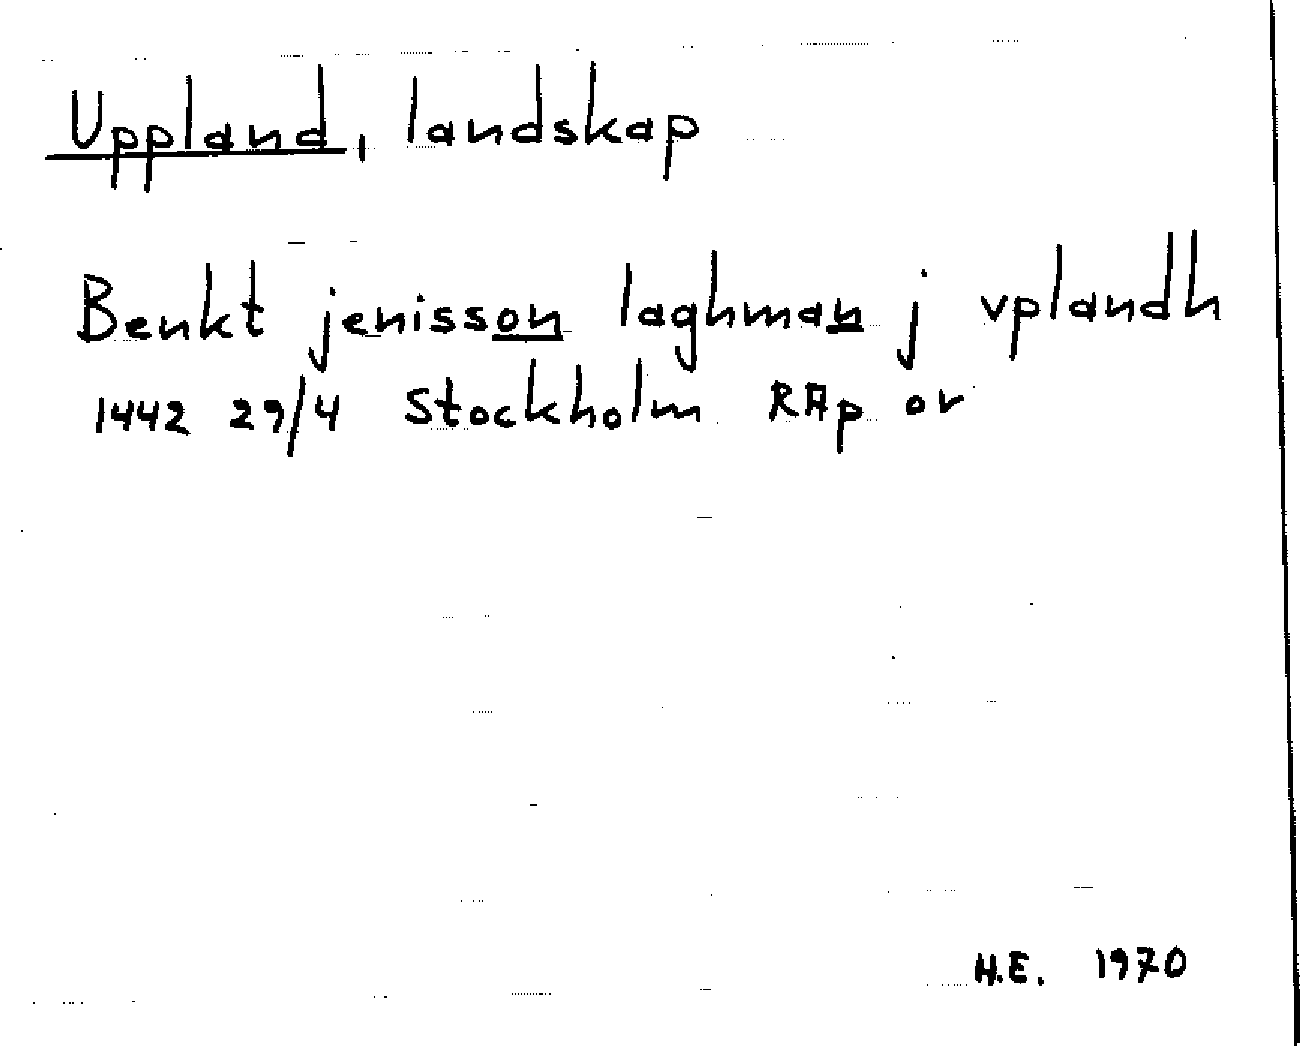 Uppland, landskap
Benkt jenisson laghman j vplandh
1442 29/4 Stockholm RAp or
H.E. 1970